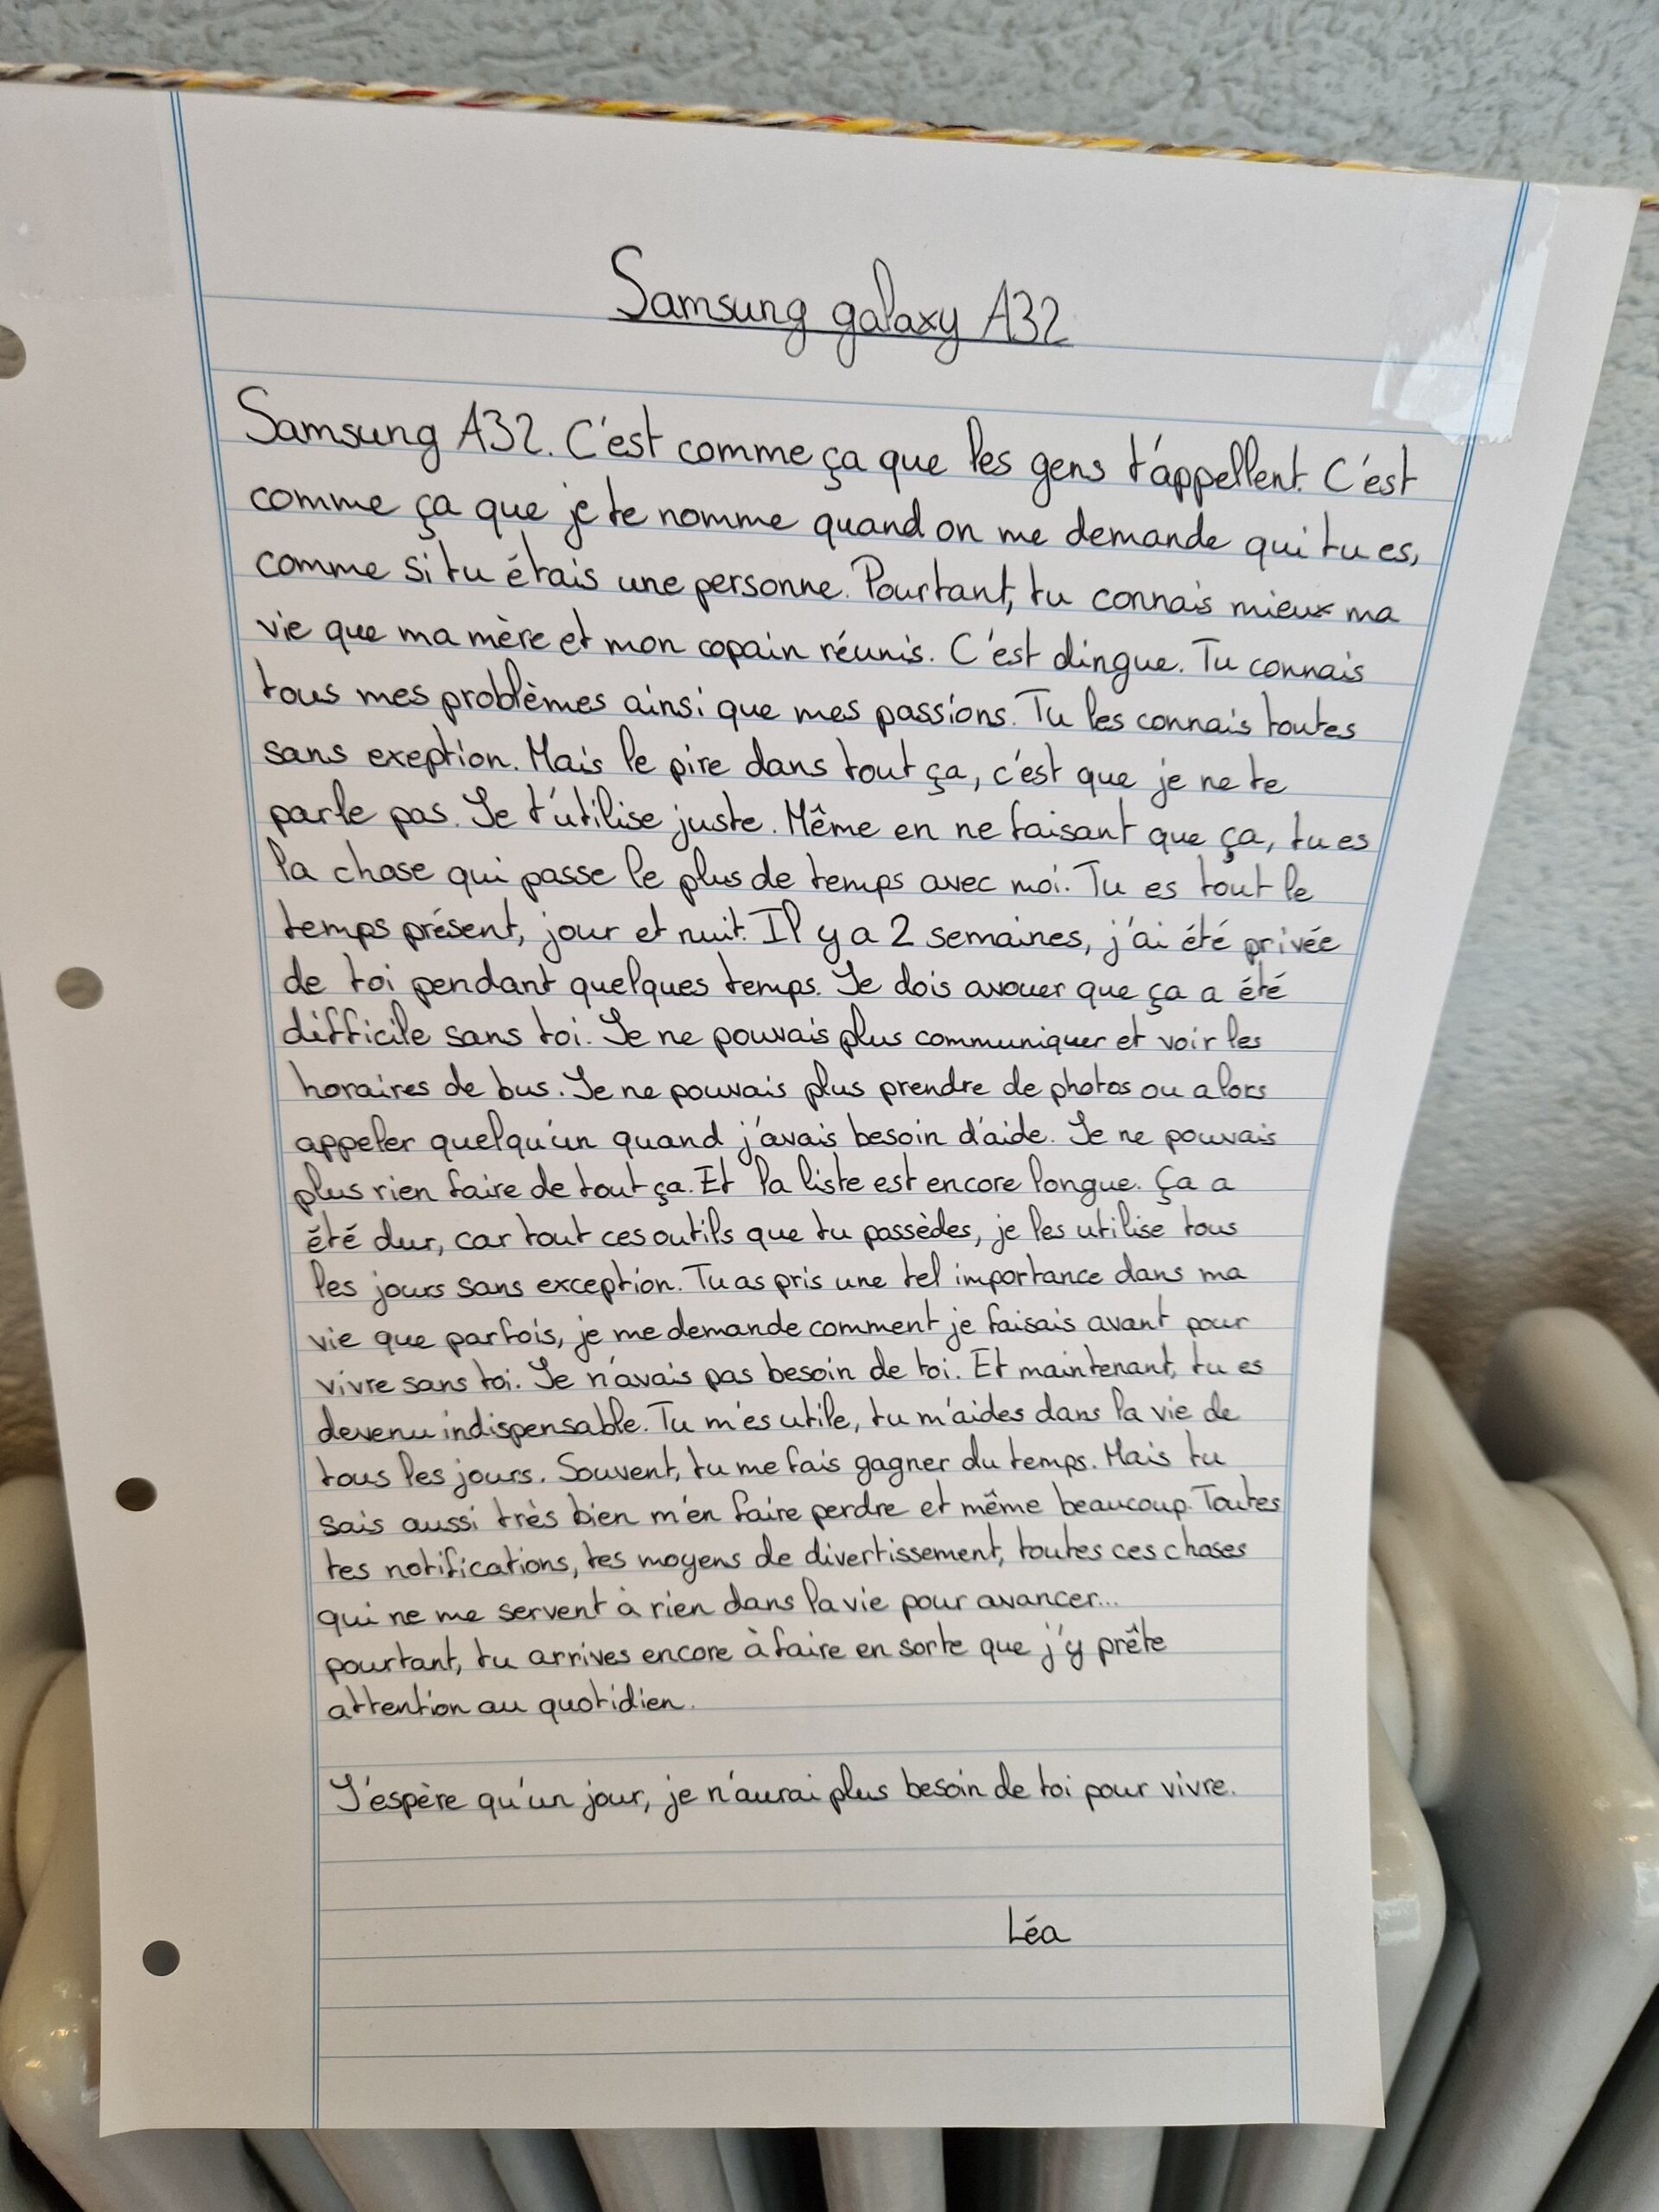 Samsung galaxy A32
Samsung A32. C'est comme ça que les gens t'appellent. C'est
comme ça que je te nomme quand on me demande qui tu es,
comme si tu étais une personne. Pourtant, tu connais mieux ma
vie que ma mère et mon copain réunis. C'est dingue. Tu connais
tous mes problèmes ainsi que mes passions. Tu les connais toutes
sans exeption. Mais le pire dans tout ça, c'est que je ne te
parle pas. Je t'utilise juste. Même en ne faisant que ça, tu es
la chose qui passe le plus de temps avec moi. Tu es tout le
temps présent, jour et nuit. Il y a 2 semaines, j'ai été privée
de toi pendant quelques temps. Je dois avouer que ça a été
difficile sans toi. Je ne pouvais plus communiquer et voir les
horaires de bus. Je ne pouvais plus prendre de photos ou alors
appeler quelqu'un quand j'avais besoin d'aide. Je ne pouvais
plus rien faire de tout ça. Et la liste est encore longue. Ça a
été dur, car tout ces outils que tu possèdes, je les utilise tous
les jours sans exception. Tu as pris une tel importance dans ma
vie que parfois, je me demande comment je faisais avant pour
vivre sans toi. Je n'avais pas besoin de toi. Et maintenant, tu es
devenu indispensable. Tu m'es utile, tu m'aides dans la vie de
tous les jours. Souvent, tu me fais gagner du temps. Mais tu
sais aussi très bien m'en faire perdre et même beaucoup. Toutes
tes notifications, tes moyens de divertissement, toutes ces choses
qui ne me servent à rien dans la vie pour avancer...
pourtant, tu arrives encore à faire en sorte que j'y prête
attention au quotidien.
J'espère qu'un jour, je n'aurai plus besoin de toi pour vivre.
Léa